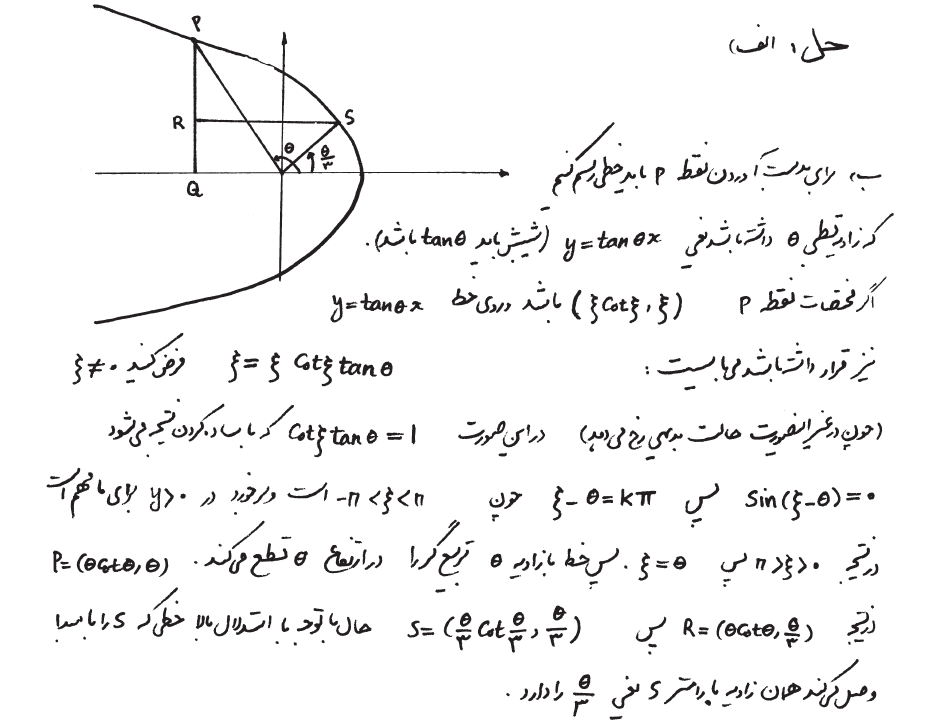 حل: الف)
P
S
R
θ
θ/۳
Q
ب، برای بدست آوردن نقطه P باید خطی رسم کنیم
که زاویه قطبی θ داشته باشد یعنی y = tanθ x (شیبش باید tanθ باشد).
اگر مختصات نقطه P (ξ Cot ξ, ξ) باشد و روی خط y = tanθ x
نیز قرار داشته باشد می‌بایست: ξ = ξ Cot ξ tan θ فرض کنید ξ ≠ ۰
(چون در غیر اینصورت حالت بدیهی رخ می‌دهد) در این صورت Cot ξ tan θ = 1 که با ساده کردن نتیجه می‌شود
Sin(ξ-θ) = ۰ پس ξ-θ = kπ چون -π < ξ < π است و برخورد در y > ۰ برای ما مهم است
در نتیجه π > ξ > ۰ پس ξ = θ. پس خط با زاویه θ تربیع گر را در ارتفاع θ قطع می‌کند. P = (θ Cot θ, θ)
در نتیجه R = (θ Cot θ, θ/۳) پس S = (θ/۳ Cot θ/۳, θ/۳) حال با توجه با استدلال بالا خطی که S را با مبدا
وصل می‌کند همان زاویه پارامتر S یعنی θ/۳ را دارد.